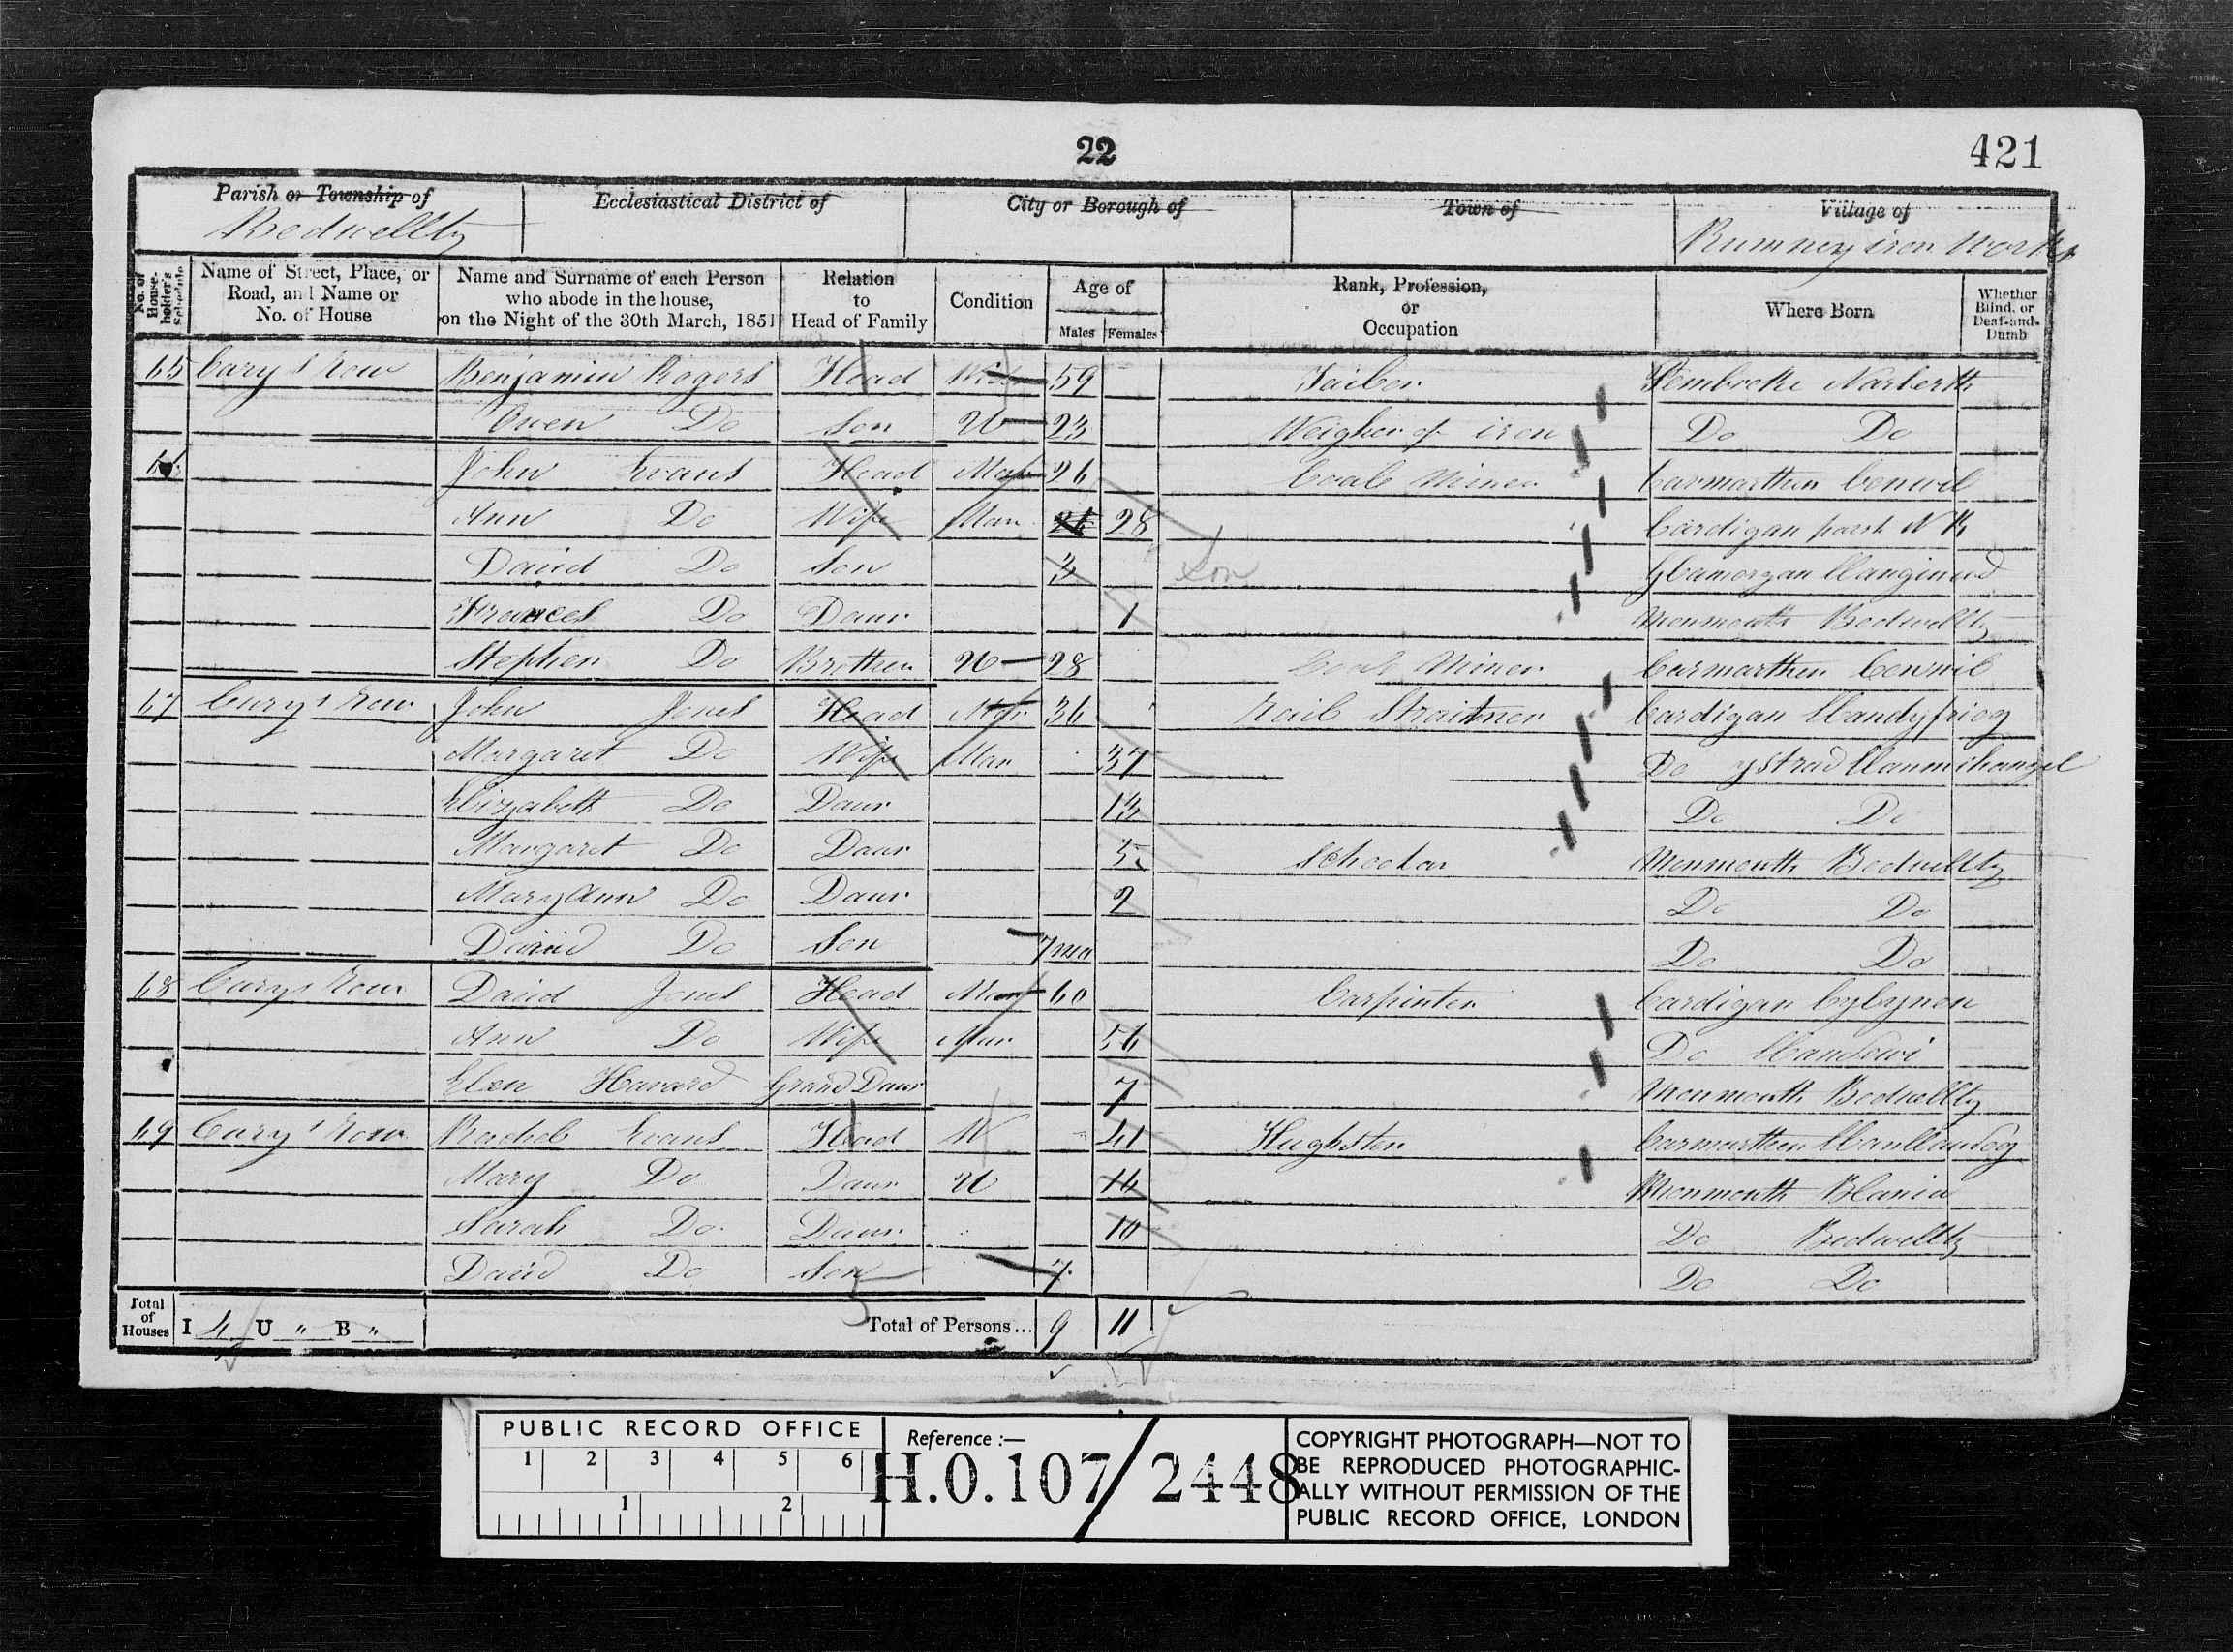 22
421
Parish or Township of
Bedwellty
Ecclesiastical District of
City or Borough of
Town of
Village of
Rumney iron Works
No. of House-holder's Schedule
Name of Street, Place, or Road, and Name or No. of House
Name and Surname of each Person who abode in the house, on the Night of the 30th March, 1851
Relation to Head of Family
Condition
Age of
Males Females
Rank, Profession, or Occupation
Where Born
Whether Blind, or Deaf-and-Dumb
65 Carys Row Benjamin Rogers Head 59 Pembroke Narberth
Owen Do Son U 23 Weigher of iron Do Do
66 John Evans Head Mar 26 Coal Miner Carmarthen
Ann Do Wife Mar 28 Cardigan N K
David Do Son 3 Son Glamorgan
Frances Do Daur 1 Monmouth Bedwellty
Stephen Do Brother U 28 Coal Miner Carmarthen
67 Carys Row John Jones Head Mar 36 Rail Straitner Cardigan Llandyfriog
Margaret Do Wife Mar 37 Do ystrad Llanmihangel
Elizabeth Do Daur 13 Do Do
Margaret Do Daur 5 Schoolar Monmouth Bedwellty
Mary Ann Do Daur 2 Do Do
David Do Son 7 mo Do Do
68 Carys Row David Jones Head Mar 60 Carpinter Cardigan
Ann Do Wife Mar 56 Do
Elen Havard Grand Daur 7 Monmouth Bedwellty
69 Carys Row Rachel Evans Head W 41 Carmarthen
Mary Do Daur U 14 Monmouth Blania
Sarah Do Daur 10 Do Bedwellty
David Do Son 7 Do Do
Total of Houses I 4 U " B " Total of Persons... 9 11
PUBLIC RECORD OFFICE
1 2 3 4 5 6
1 2
Reference :—
H.O. 107/2448
COPYRIGHT PHOTOGRAPH—NOT TO
BE REPRODUCED PHOTOGRAPHIC-
ALLY WITHOUT PERMISSION OF THE
PUBLIC RECORD OFFICE, LONDON